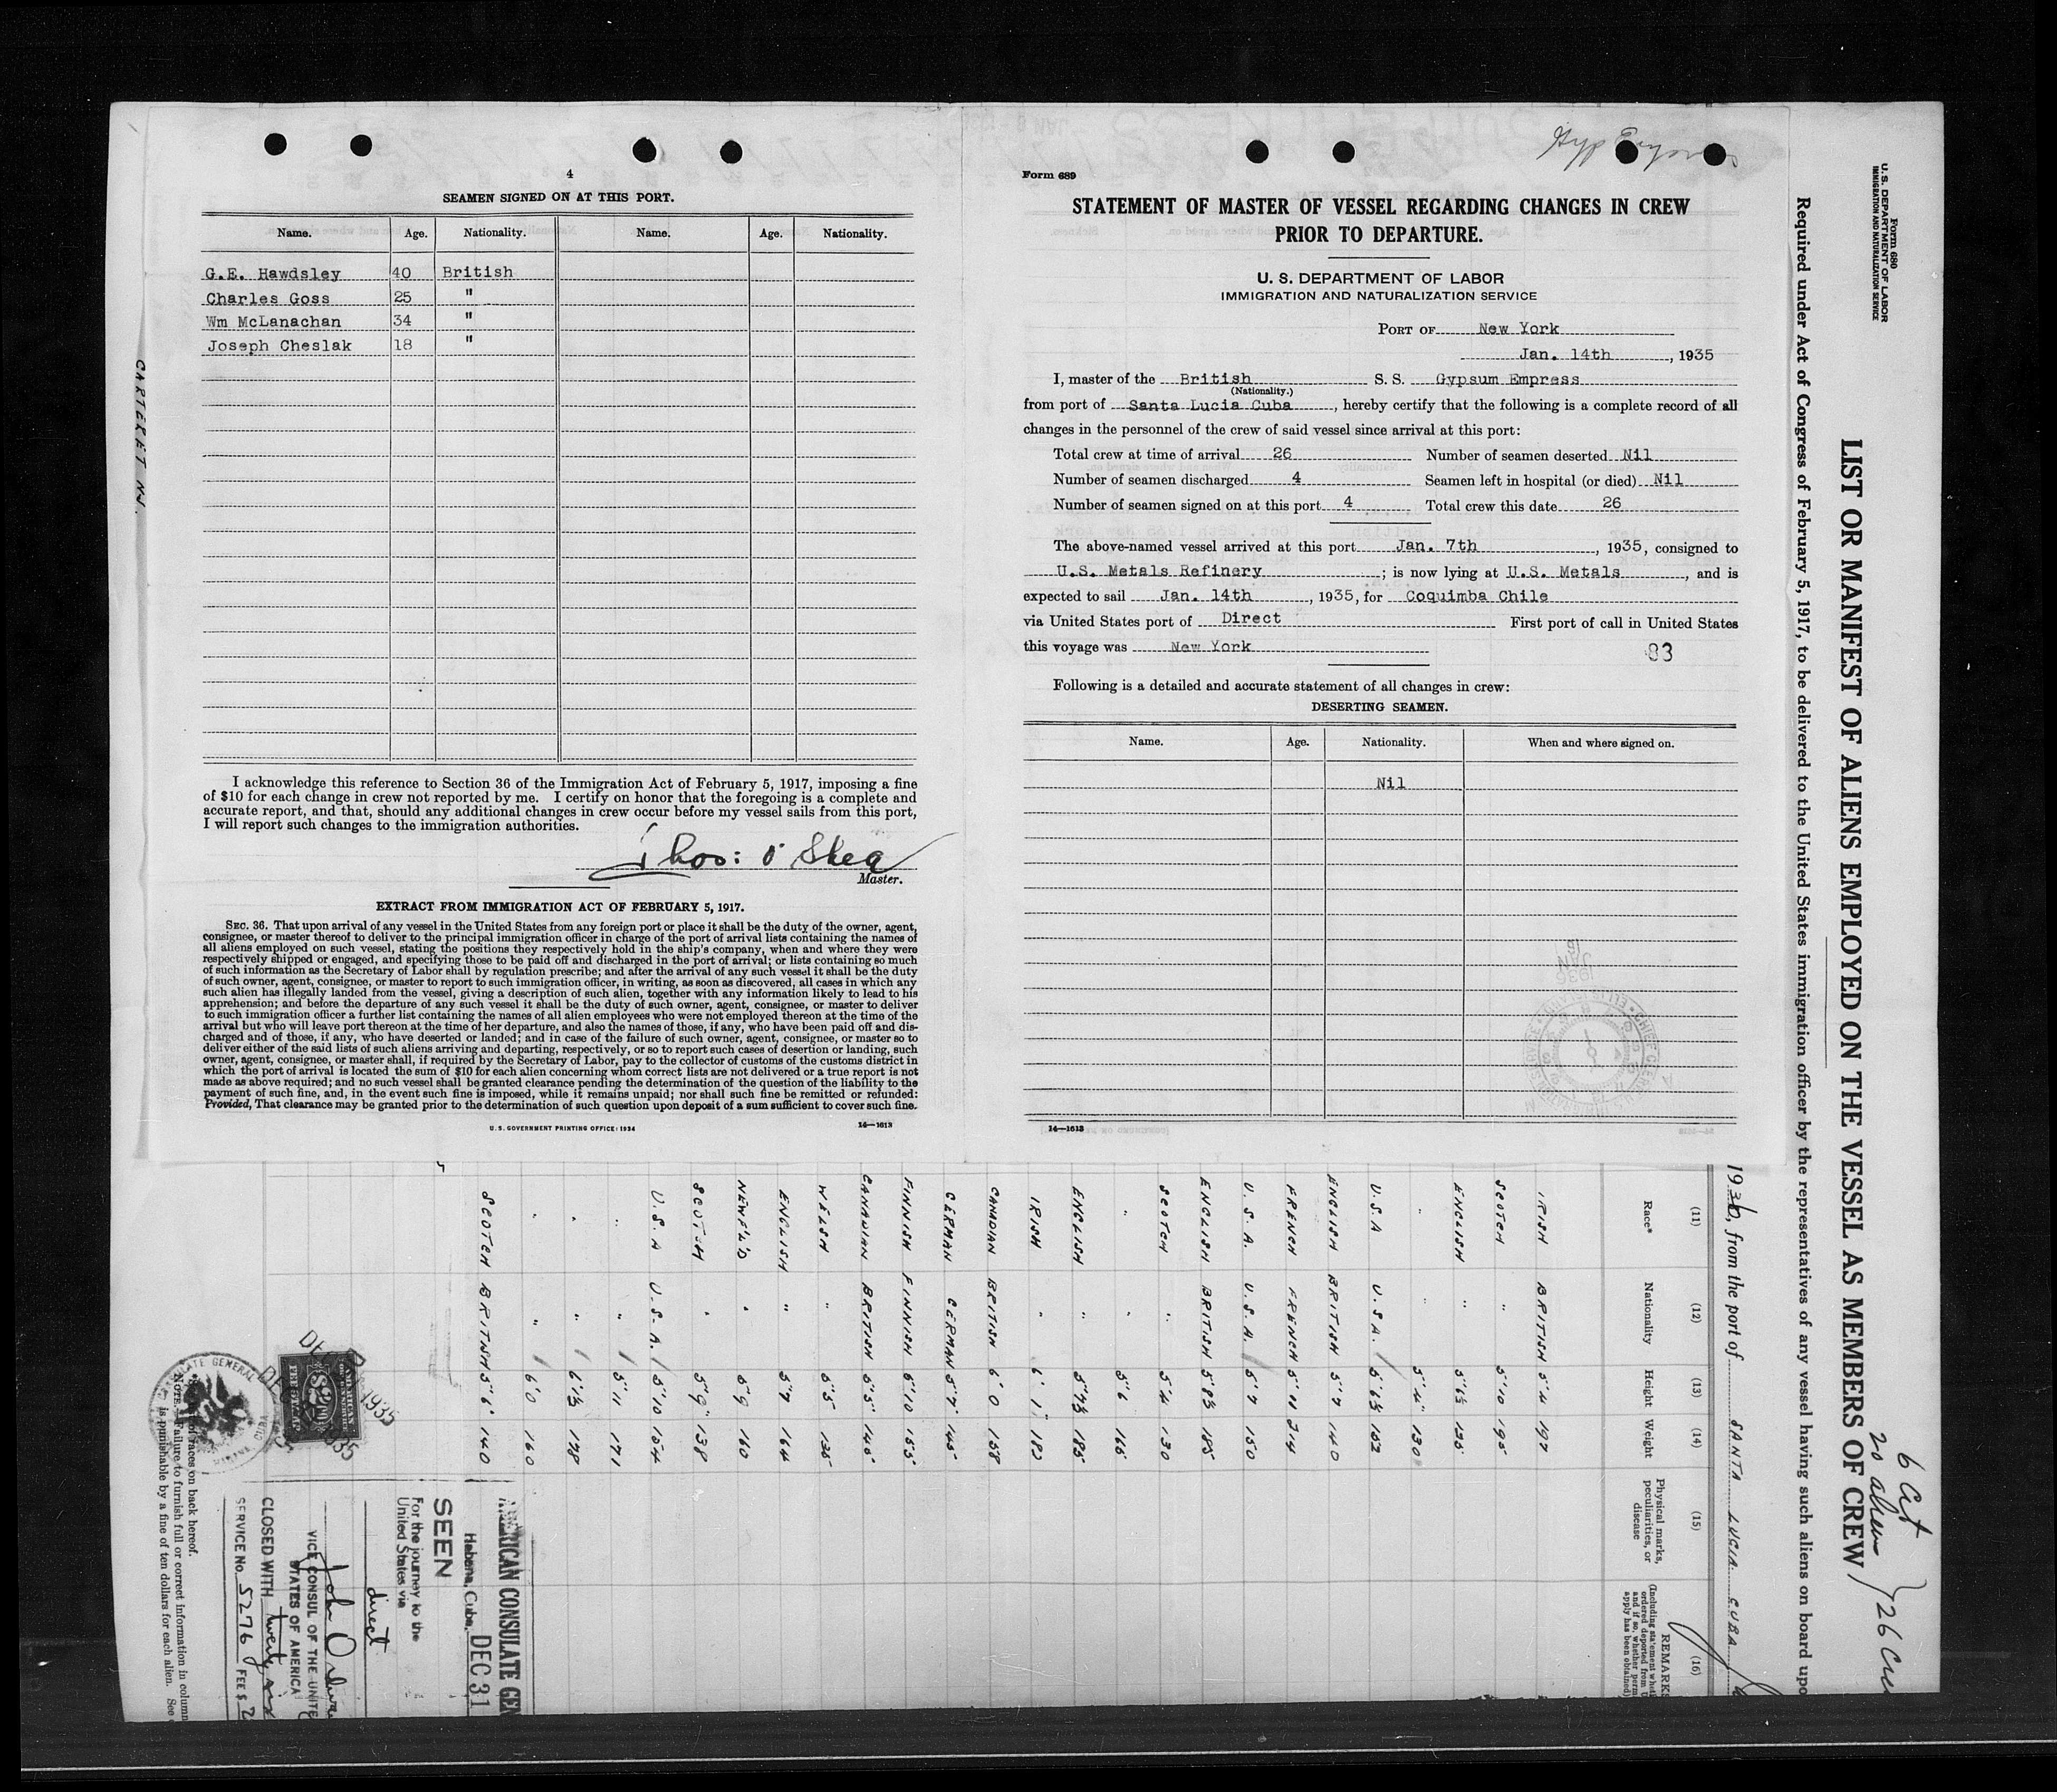 4
SEAMEN SIGNED ON AT THIS PORT.
Name. Age. Nationality. Name. Age. Nationality.
G.E. Hawdsley 40 British
Charles Goss 25 "
Wm McLanachan 34 "
Joseph Cheslak 18 "
I acknowledge this reference to Section 36 of the Immigration Act of February 5, 1917, imposing a fine
of $10 for each change in crew not reported by me. I certify on honor that the foregoing is a complete and
accurate report, and that, should any additional changes in crew occur before my vessel sails from this port,
I will report such changes to the immigration authorities.
Thos: O'Shea
Master.
EXTRACT FROM IMMIGRATION ACT OF FEBRUARY 5, 1917.
SEC. 36. That upon arrival of any vessel in the United States from any foreign port or place it shall be the duty of the owner, agent,
consignee, or master thereof to deliver to the principal immigration officer in charge of the port of arrival lists containing the names of
all aliens employed on such vessel, stating the positions they respectively hold in the ship's company, when and where they were
respectively shipped or engaged, and specifying those to be paid off and discharged in the port of arrival; or lists containing so much
of such information as the Secretary of Labor shall by regulation prescribe; and after the arrival of any such vessel it shall be the duty
of such owner, agent, consignee, or master to report to such immigration officer, in writing, as soon as discovered, all cases in which any
such alien has illegally landed from the vessel, giving a description of such alien, together with any information likely to lead to his
apprehension; and before the departure of any such vessel it shall be the duty of such owner, agent, consignee, or master to deliver
to such immigration officer a further list containing the names of all alien employees who were not employed thereon at the time of the
arrival but who will leave port thereon at the time of her departure, and also the names of those, if any, who have been paid off and dis-
charged and of those, if any, who have deserted or landed; and in case of the failure of such owner, agent, consignee, or master so to
deliver either of the said lists of such aliens arriving and departing, respectively, or so to report such cases of desertion or landing, such
owner, agent, consignee, or master shall, if required by the Secretary of Labor, pay to the collector of customs of the customs district in
which the port of arrival is located the sum of $10 for each alien concerning whom correct lists are not delivered or a true report is not
made as above required; and no such vessel shall be granted clearance pending the determination of the question of the liability to the
payment of such fine, and, in the event such fine is imposed, while it remains unpaid; nor shall such fine be remitted or refunded:
Provided, That clearance may be granted prior to the determination of such question upon deposit of a sum sufficient to cover such fine.
U. S. GOVERNMENT PRINTING OFFICE: 1934 14—1613
CARTERET N.J.
Form 689
STATEMENT OF MASTER OF VESSEL REGARDING CHANGES IN CREW
PRIOR TO DEPARTURE.
U. S. DEPARTMENT OF LABOR
IMMIGRATION AND NATURALIZATION SERVICE
PORT OF New York
Jan. 14th, 1935
I, master of the British S. S. Gypsum Empress
(Nationality.)
from port of Santa Lucia Cuba, hereby certify that the following is a complete record of all
changes in the personnel of the crew of said vessel since arrival at this port:
Total crew at time of arrival 26 Number of seamen deserted Nil
Number of seamen discharged 4 Seamen left in hospital (or died) Nil
Number of seamen signed on at this port 4 Total crew this date 26
The above-named vessel arrived at this port Jan. 7th, 1935, consigned to
U.S. Metals Refinery; is now lying at U.S. Metals, and is
expected to sail Jan. 14th, 1935, for Coquimba Chile
via United States port of Direct First port of call in United States
this voyage was New York
83
Following is a detailed and accurate statement of all changes in crew:
DESERTING SEAMEN.
Name. Age. Nationality. When and where signed on.
Nil
14—1613
Form 680
U. S. DEPARTMENT OF LABOR
IMMIGRATION AND NATURALIZATION SERVICE
LIST OR MANIFEST OF ALIENS EMPLOYED ON THE VESSEL AS MEMBERS OF CREW
6 cit
20 alien } 26 Cre
Required under Act of Congress of February 5, 1917, to be delivered to the United States immigration officer by the representatives of any vessel having such aliens on board upo
, from the port of SANTA LUCIA CUBA
(11) (12) (13) (14) (15) (16)
Race* Nationality Height Weight Physical marks, peculiarities, or disease REMARKS
IRISH BRITISH 5'4 197
SCOTCH " 5'10 195
ENGLISH " 5'6½ 135
" " 5'4" 130
U.S.A U.S.A. 5'6½ 152
ENGLISH BRITISH 5'7 140
FRENCH FRENCH 5'11 214
U.S.A. U.S.A. 5'7 150
ENGLISH BRITISH 5'8½ 185
SCOTCH " 5'4 130
" " 5'6 165
ENGLISH " 5'7½ 185
IRISH " 6'1" 182
CANADIAN BRITISH 6'0 158
GERMAN GERMAN 5'7" 145
FINNISH FINNISH 5'10 155
CANADIAN BRITISH 5'5" 145
WELSH " 5'5 135
ENGLISH " 5'7 164
NEWF'L'D " 5'9 160
SCOTCH " 5'9" 138
U.S.A U.S.A. 5'10 154
" " 5'11 171
" " 6'1½ 178
" " 6'0 160
SCOTCH BRITISH 5'6" 140
AMERICAN CONSULATE GEN
Habana, Cuba. DEC 31
SEEN
For the journey to the
United States via
direct
VICE CONSUL OF THE UNITE
STATES OF AMERICA
CLOSED WITH twenty six
SERVICE No. 5276 FEE $ 2
AMERICAN
FEE STAMP
$2
1935
of races on back hereof.
NOTE.—Failure to furnish full or correct information in column
is punishable by a fine of ten dollars for each alien. See